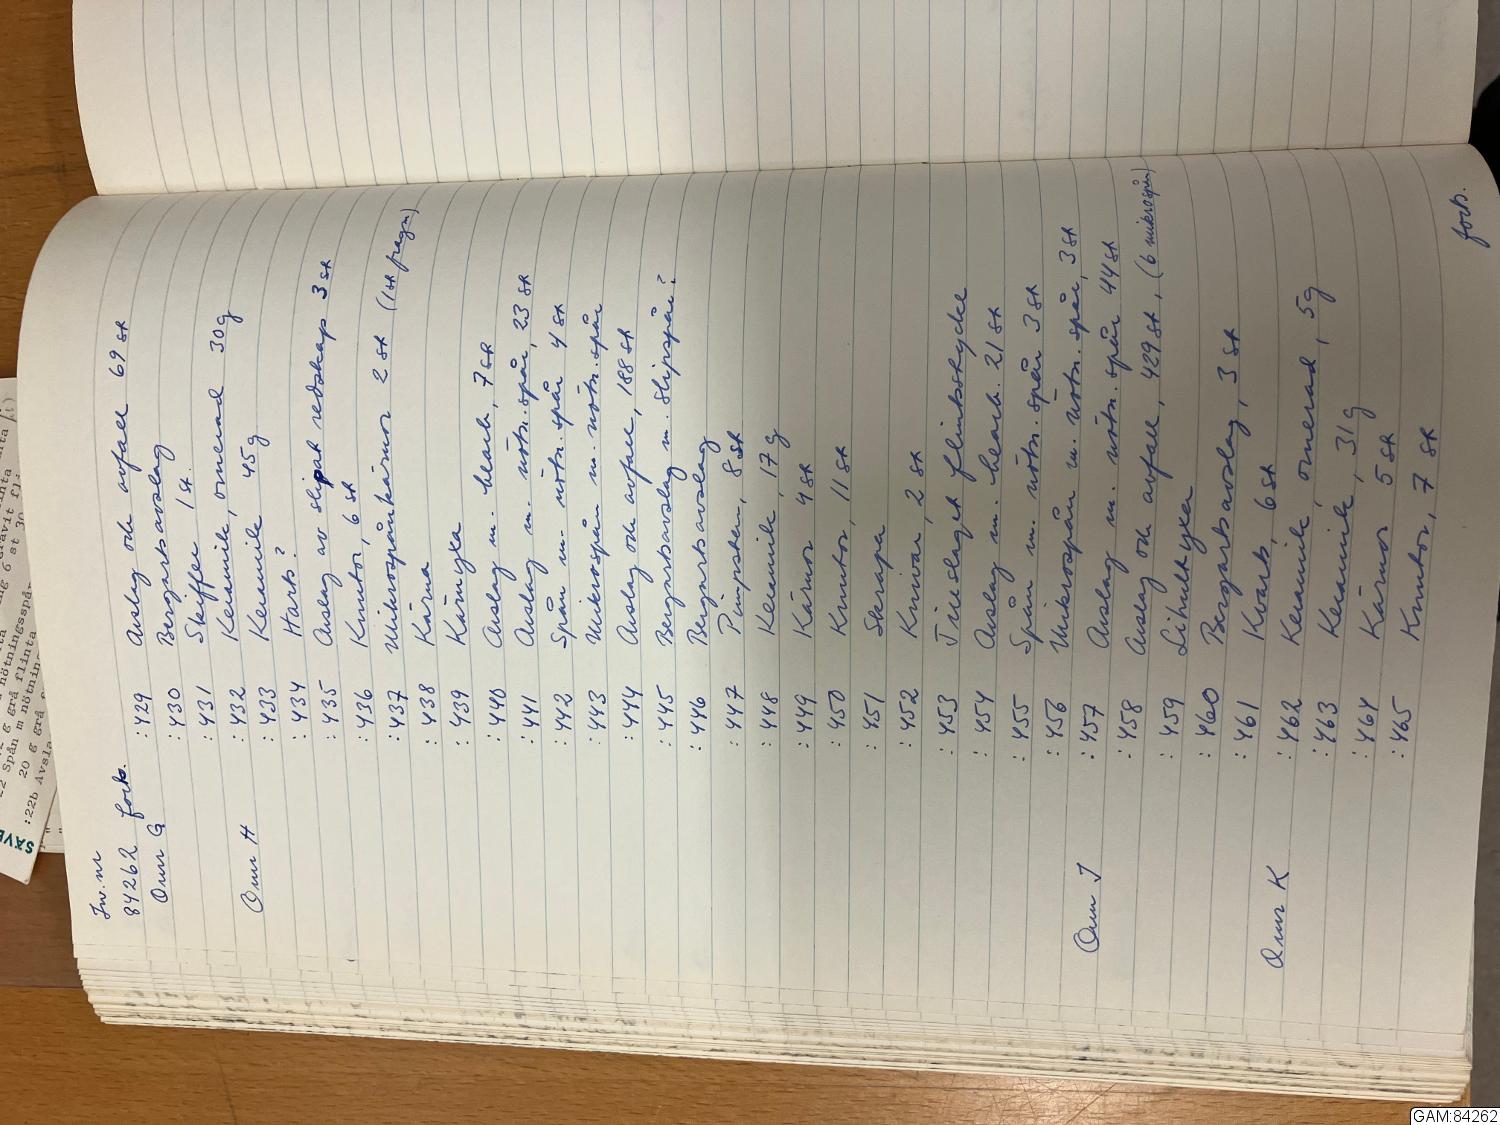 Inv.nr
84262 forts.
Omr G :429 Avslag och avfall 69 st
:430 Bergartsavslag
:431 Skiffer 1 st.
:432 Keramik, ornerad 30g
Omr H :433 Keramik 45g
:434 Harts?
:435 Avslag av slipat redskap 3 st
:436 Knutor, 6 st
:437 Mikrospånkärnor 2 st (1 st fragm)
:438 Kärna
:439 Kärnyxa
:440 Avslag m. bearb, 7 st
:441 Avslag m. nötn.spår, 23 st
:442 Spån m. nötn.spår 4 st
:443 Mikrospån m. nötn.spår
:444 Avslag och avfall, 188 st
:445 Bergartsavslag m. slipspår?
:446 Bergartsavslag
:447 Pimpsten, 8 st
:448 Keramik, 17 g
:449 Kärnor 4 st
:450 Knutor, 11 st
:451 Skrapa
:452 Knivar, 2 st
:453 Tillslaget flintstycke
:454 Avslag m. bearb. 21 st
:455 Spån m. nötn.spår 3 st
:456 Mikrospån m. nötn.spår, 3 st
Omr J :457 Avslag m. nötn.spår 44 st
:458 Avslag och avfall, 429 st, (6 mikrospån)
:459 Lihultyxa
:460 Bergartsavslag, 3 st
:461 Kvarts, 6 st
Omr K :462 Keramik, ornerad, 5g
:463 Keramik, 31 g
:464 Kärnor 5 st
:465 Knutor, 7 st
forts.
SÄVE
:22b Avsla
20 g grå f
22 Spån m nötning
g grå flinta
nötningsspår
6 st 30
GAM:84262